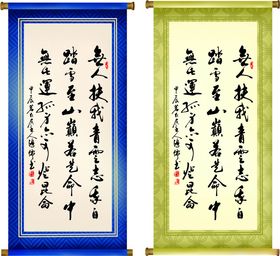 無人扶我青雲志我自
踏雪至山巔若是命中
無此運孤身亦可登昆侖
無人扶我青雲志我自
踏雪至山巔若是命中
無此運孤身亦可登昆侖